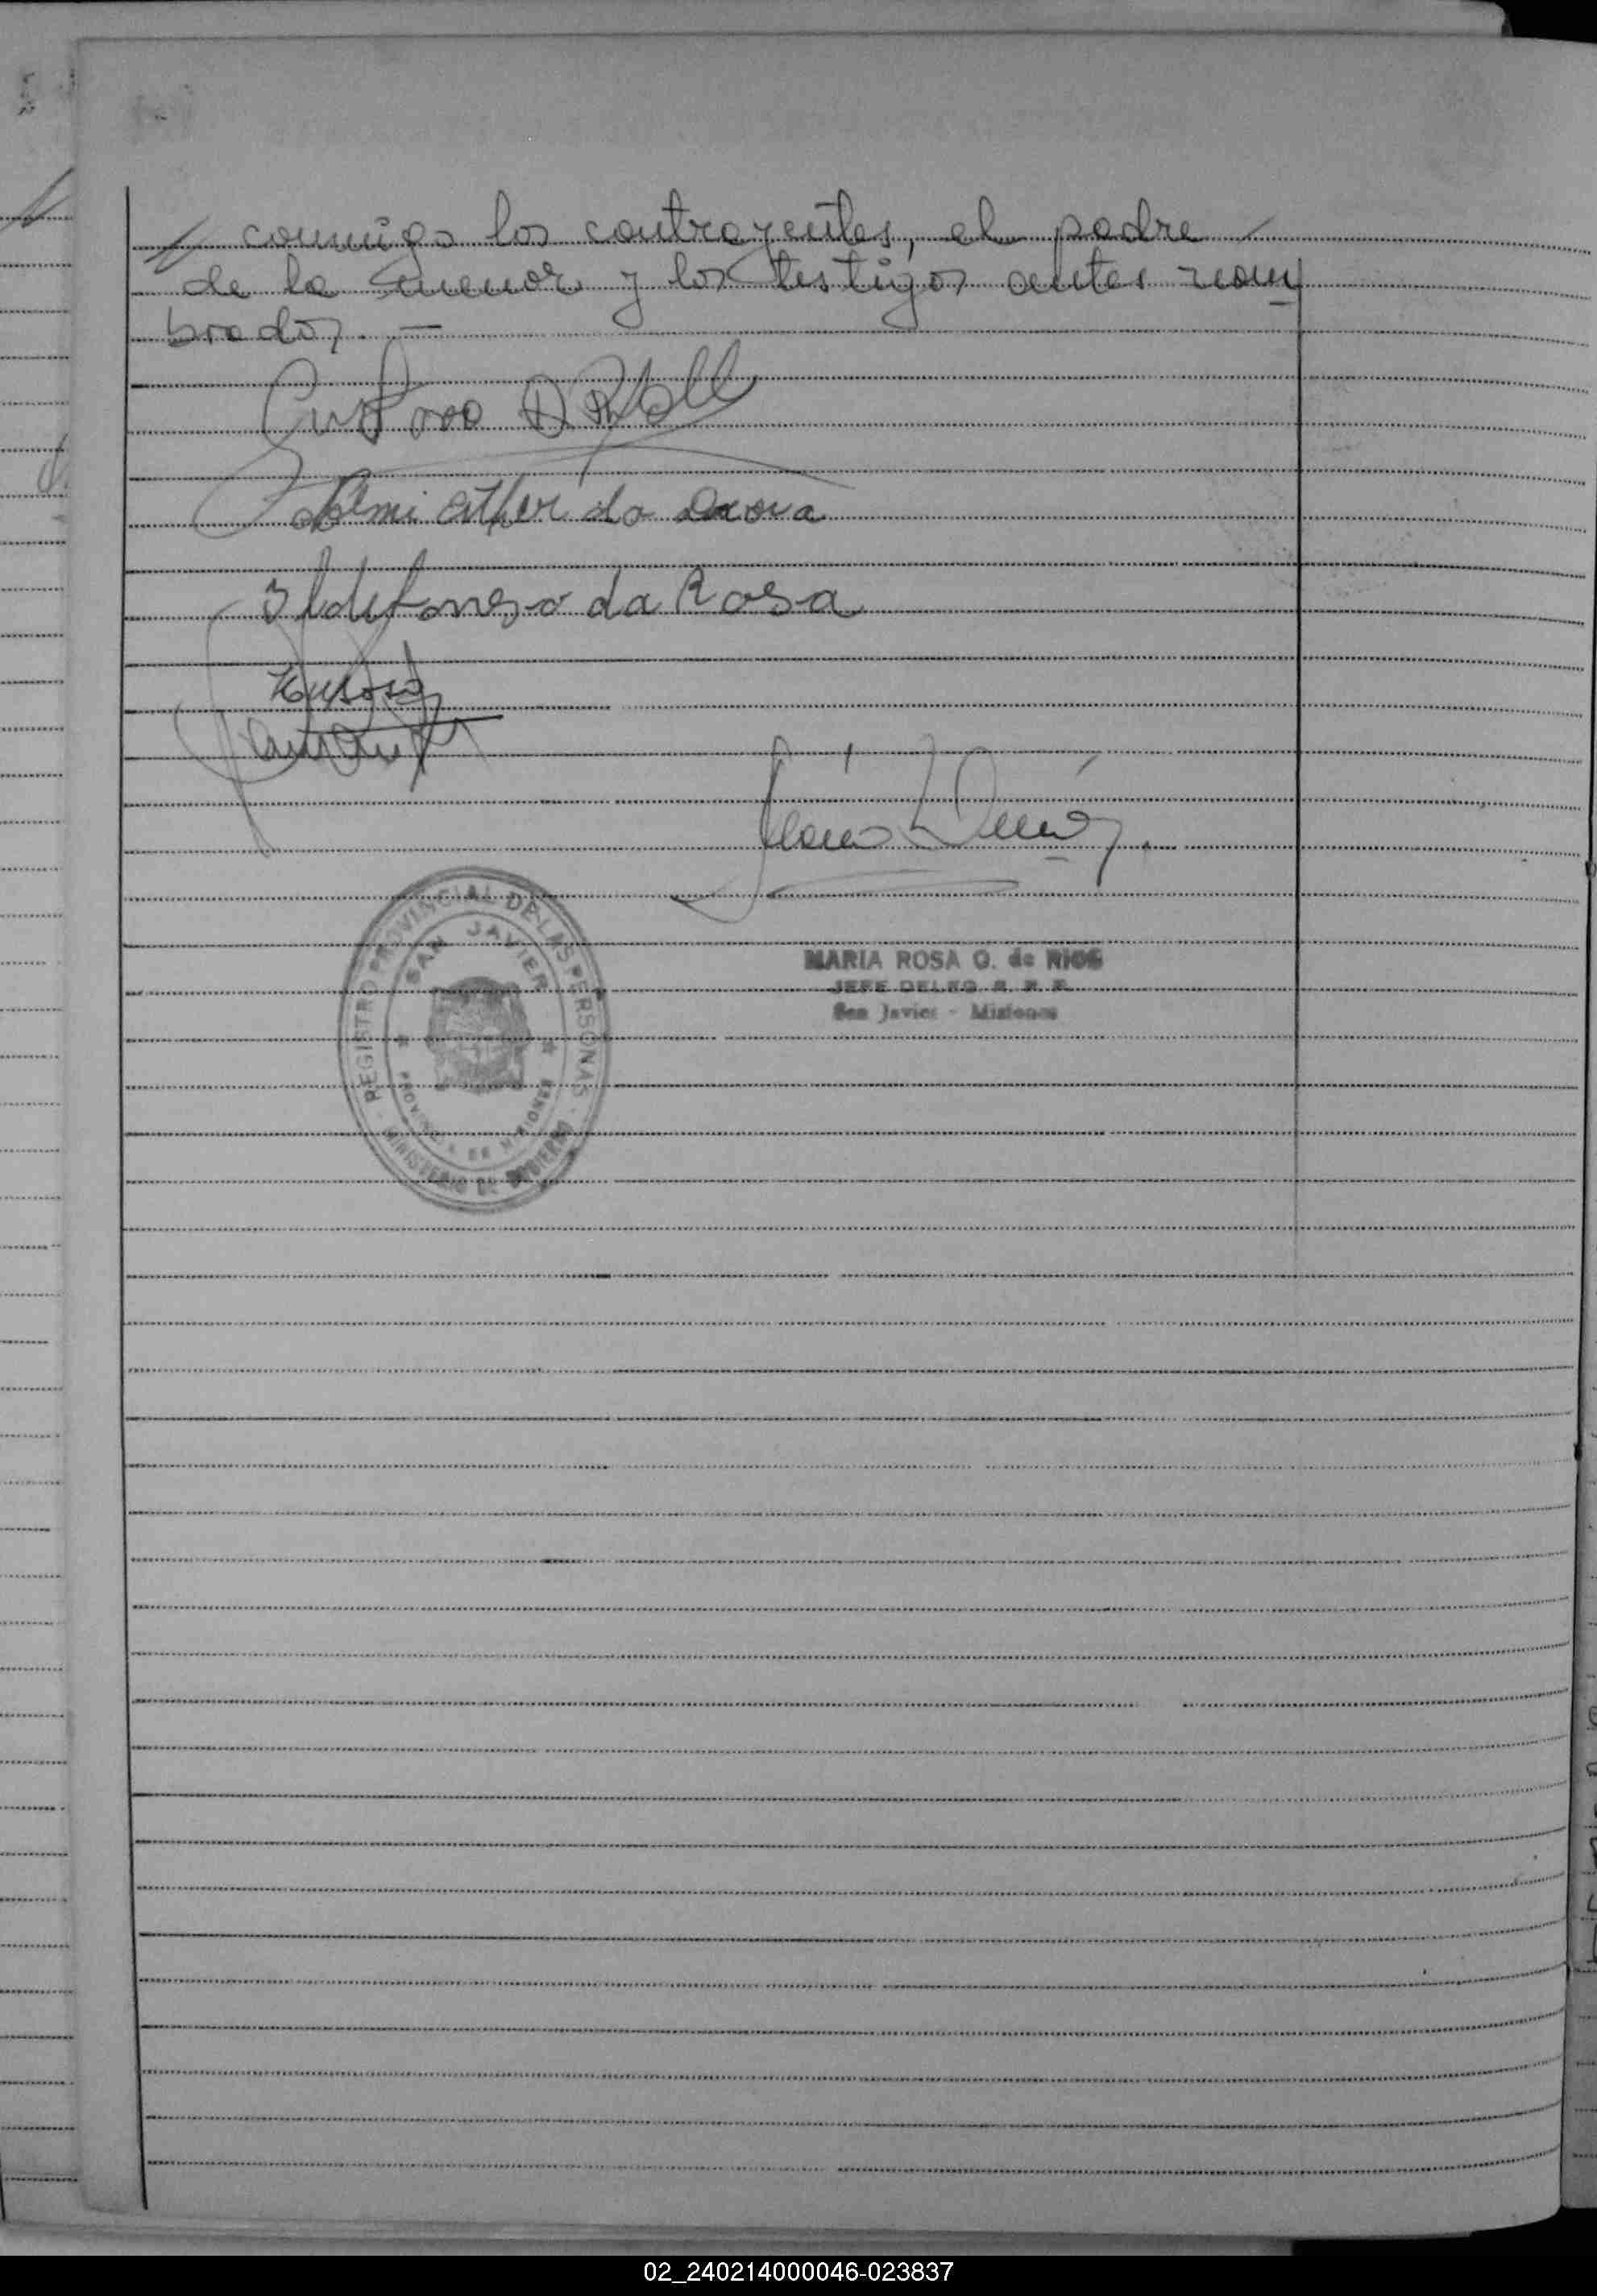 // conmigo los contrayentes, el padre –
de la menor y los testigos antes nom
brados. –
Gustavo D Roll
Noemi Esther da Rosa
Ildefonso da Rosa
REGISTRO PROVINCIAL DE LAS PERSONAS
SAN JAVIER
PROVINCIA DE MISIONES
MINISTERIO DE GOBIERNO
MARIA ROSA G. de RIOS
JEFE DELEG. R. P. P.
San Javier - Misiones
02_240214000046-023837